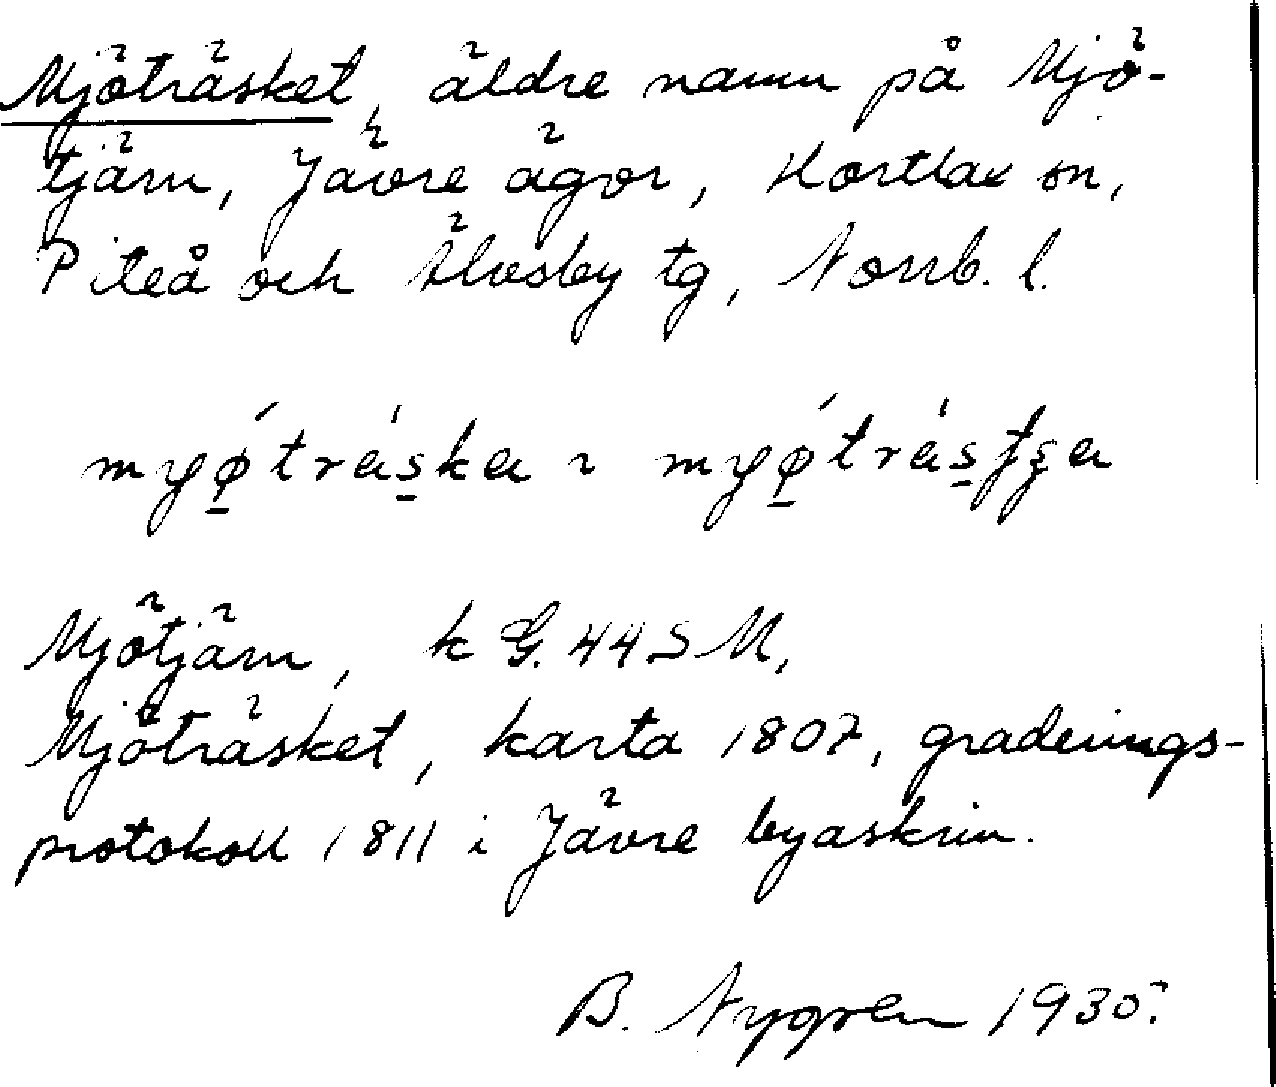 Mjöträsket, äldre namn på Mjö-
tjärn, Jävre ägor, Hortlax sn,
Piteå och Älvsby tg, Norrb. l.
Mjötjärn, k G. 44 S M,
Mjöträsket, karta 1807, graderings-
protokoll 1811 i Jävre byaskrin.
B. Nygren 1930.